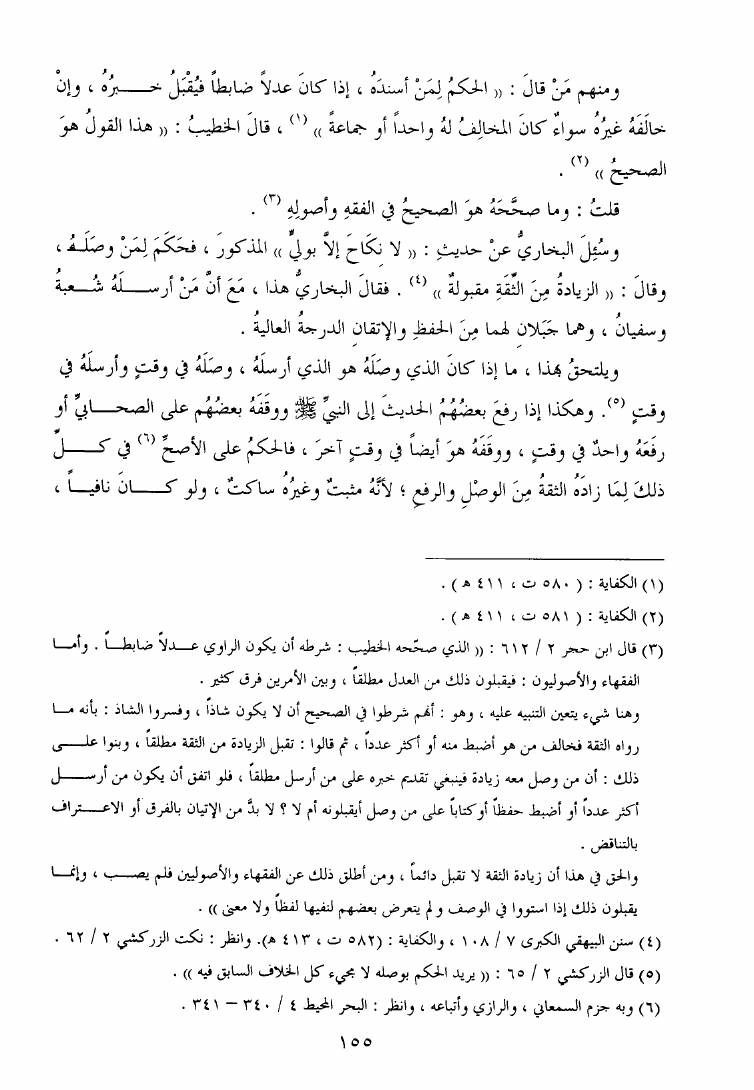 ومنهم مَنْ قالَ : (( الحكمُ لِمَنْ أسندَهُ ، إذا كانَ عدلاً ضابطاً فيُقْبَلُ خبرُهُ ، وإنْ
خالَفَهُ غيرُهُ سواءٌ كانَ المخالِفُ لهُ واحداً أو جماعةً )) (١) ، قالَ الخطيبُ : (( هذا القولُ هوَ
الصحيحُ )) (٢) .
قلتُ : وما صحَّحَهُ هوَ الصحيحُ في الفقهِ وأصولِهِ (٣) .
وسُئِلَ البخاريُّ عنْ حديثِ : (( لا نِكَاحَ إلاَّ بوليٍّ )) المذكورَ ، فحَكَمَ لِمَنْ وصَلَهُ ،
وقالَ : (( الزيادةُ مِنَ الثِّقَةِ مقبولةٌ )) (٤) . فقالَ البخاريُّ هذا ، مَعَ أنَّ مَنْ أرسلَهُ شعبةُ
وسفيانُ ، وهما جَبَلانِ لهما مِنَ الحفظِ والإتقانِ الدرجةُ العاليةُ .
ويلتحقُ بهذا ، ما إذا كانَ الذي وصَلَهُ هو الذي أرسلَهُ ، وصَلَهُ في وقتٍ وأرسلَهُ في
وقتٍ (٥). وهكذا إذا رفعَ بعضُهُمُ الحديثَ إلى النبيِّ ﷺ ووقَفَهُ بعضُهُم على الصحابيِّ أو
رفَعَهُ واحدٌ في وقتٍ ، ووقَفَهُ هوَ أيضاً في وقتٍ آخرَ ، فالحكمُ على الأصحِّ (٦) في كلِّ
ذلكَ لِمَا زادَهُ الثقةُ مِنَ الوصْلِ والرفعِ ؛ لأنَّهُ مثبتٌ وغيرُهُ ساكتٌ ، ولو كانَ نافياً ،
(١) الكفاية : ( ٥٨٠ ت ، ٤١١ هـ ) .
(٢) الكفاية : ( ٥٨١ ت ، ٤١١ هـ ) .
(٣) قال ابن حجر ٢ / ٦١٢ : (( الذي صحّحه الخطيب : شرطه أن يكون الراوي عدلاً ضابطاً . وأما
الفقهاء والأصوليون : فيقبلون ذلك من العدل مطلقاً ، وبين الأمرين فرق كثير .
وهنا شيء يتعين التنبيه عليه ، وهو : أنهم شرطوا في الصحيح أن لا يكون شاذاً ، وفسروا الشاذ : بأنه ما
رواه الثقة فخالف من هو أضبط منه أو أكثر عدداً ، ثم قالوا : تقبل الزيادة من الثقة مطلقاً ، وبنوا على
ذلك : أن من وصل معه زيادة فينبغي تقديم خبره على من أرسل مطلقاً ، فلو اتفق أن يكون من أرسل
أكثر عدداً أو أضبط حفظاً أو كتاباً على من وصل أيقبلونه أم لا ؟ لا بدَّ من الإتيان بالفرق أو الاعتراف
بالتناقض .
والحق في هذا أن زيادة الثقة لا تقبل دائماً ، ومن أطلق ذلك عن الفقهاء والأصوليين فلم يصب ، وإنما
يقبلون ذلك إذا استووا في الوصف ولم يتعرض بعضهم لنفيها لفظاً ولا معنى )) .
(٤) سنن البيهقي الكبرى ٧ / ١٠٨ ، والكفاية : (٥٨٢ ت ، ٤١٣ هـ). وانظر : نكت الزركشي ٢ / ٦٢ .
(٥) قال الزركشي ٢ / ٦٥ : (( يريد الحكم بوصله لا يجيء كل الخلاف السابق فيه )) .
(٦) وبه جزم السمعاني ، والرازي وأتباعه ، وانظر : البحر المحيط ٤ / ٣٤٠ – ٣٤١ .
١٥٥